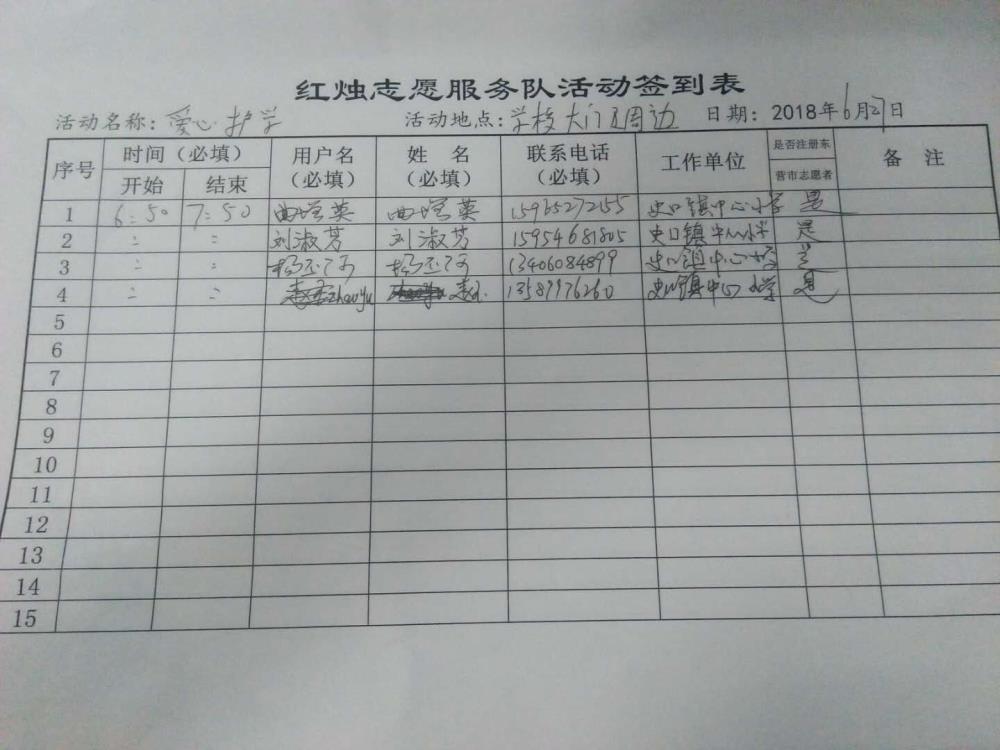 红烛志愿服务队活动签到表
活动名称：爱心护学 活动地点：学校大门及周边 日期：2018年6月27日
序号 时间（必填） 用户名（必填） 姓 名（必填） 联系电话（必填） 工作单位 是否注册东营市志愿者 备 注
开始 结束
1 6:50 7:50 曲增英 曲增英 15965272155 史口镇中心小学 是
2 〃 〃 刘淑芳 刘淑芳 15954681805 史口镇中心小学 是
3 〃 〃 13406084899 史口镇中心小学 是
4 〃 〃 zhaoyu 13589976260 史口镇中心小学 是
5
6
7
8
9
10
11
12
13
14
15